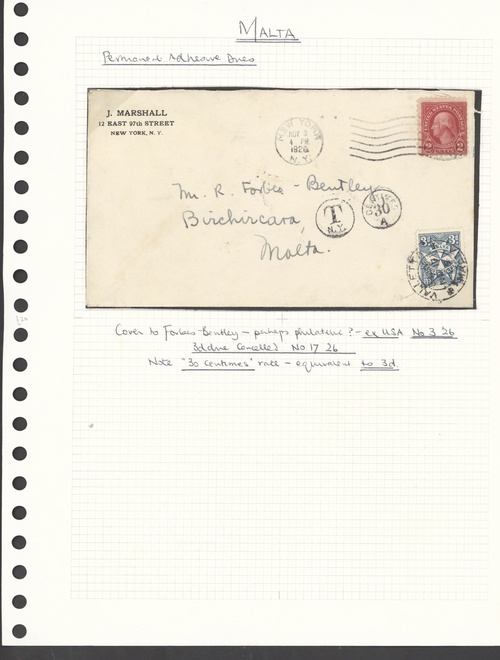 MALTA
Permanent Adhesive Dues
J. MARSHALL
12 EAST 97th STREET
NEW YORK, N. Y.
NEW YORK
NOV 3
4 PM
1926
N.Y.
UNITED STATES POSTAGE
2 CENTS 2
Mr. R. Forbes - Bentley
Birchircara,
Malta.
T
N.Y.
CENTIMES
30
A
3d 3d
VALLETTA
Cover to Forbes-Bentley - perhaps philatelic? - ex USA No 3 26
3d due cancelled No 17 26
Note "30 centimes" rate - equivalent to 3d.